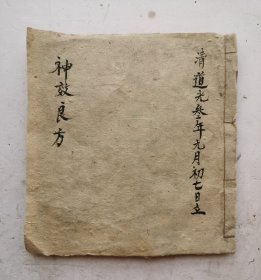 清道光叁年元月初七日立
神效良方